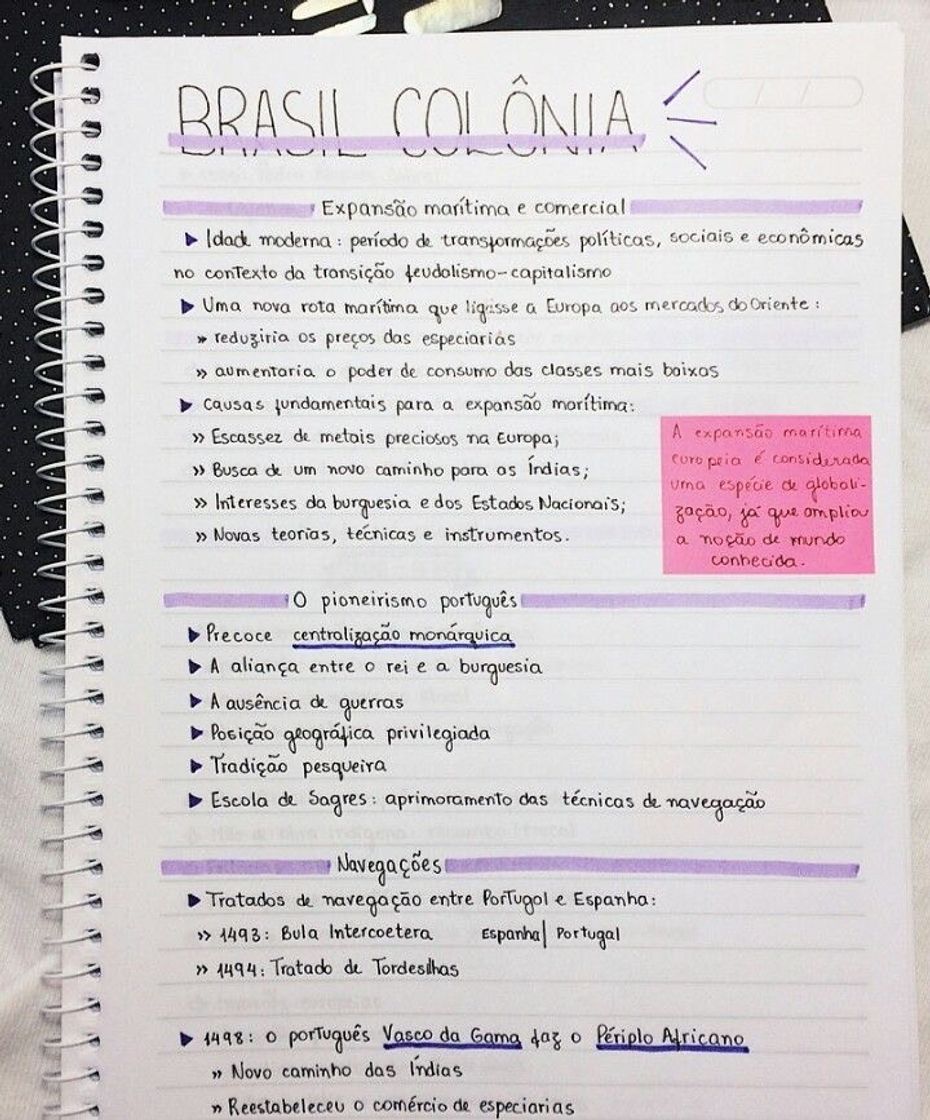 BRASIL COLÔNIA
Expansão marítima e comercial
Idade moderna: período de transformações políticas, sociais e econômicas
no contexto da transição feudalismo-capitalismo
Uma nova rota marítima que ligasse a Europa aos mercados do Oriente:
» reduziria os preços das especiarias
» aumentaria o poder de consumo das classes mais baixas
Causas fundamentais para a expansão marítima:
» Escassez de metais preciosos na Europa;
» Busca de um novo caminho para as Índias;
» Interesses da burguesia e dos Estados Nacionais;
» Novas teorias, técnicas e instrumentos.
A expansão marítima
europeia é considerada
uma espécie de globali-
zação, já que ampliou
a noção de mundo
conhecida.
O pioneirismo português
Precoce centralização monárquica
A aliança entre o rei e a burguesia
A ausência de guerras
Posição geográfica privilegiada
Tradição pesqueira
Escola de Sagres: aprimoramento das técnicas de navegação
Navegações
Tratados de navegação entre Portugal e Espanha:
» 1493: Bula Intercoetera Espanha| Portugal
» 1494: Tratado de Tordesilhas
1498: o português Vasco da Gama faz o Périplo Africano
» Novo caminho das Índias
» Reestabeleceu o comércio de especiarias